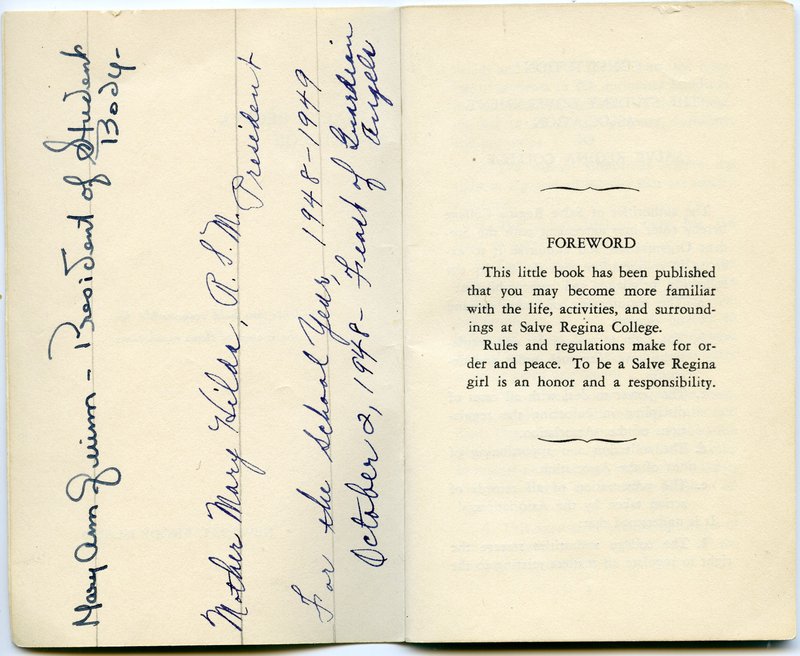 Mary Ann Quinn - President of Student
Body -
Mother Mary Hilda, R.S.M. President
For the School Year, 1948-1949
October 2, 1948 - Feast of Guardian
Angels
FOREWORD
This little book has been published
that you may become more familiar
with the life, activities, and surround-
ings at Salve Regina College.
Rules and regulations make for or-
der and peace. To be a Salve Regina
girl is an honor and a responsibility.